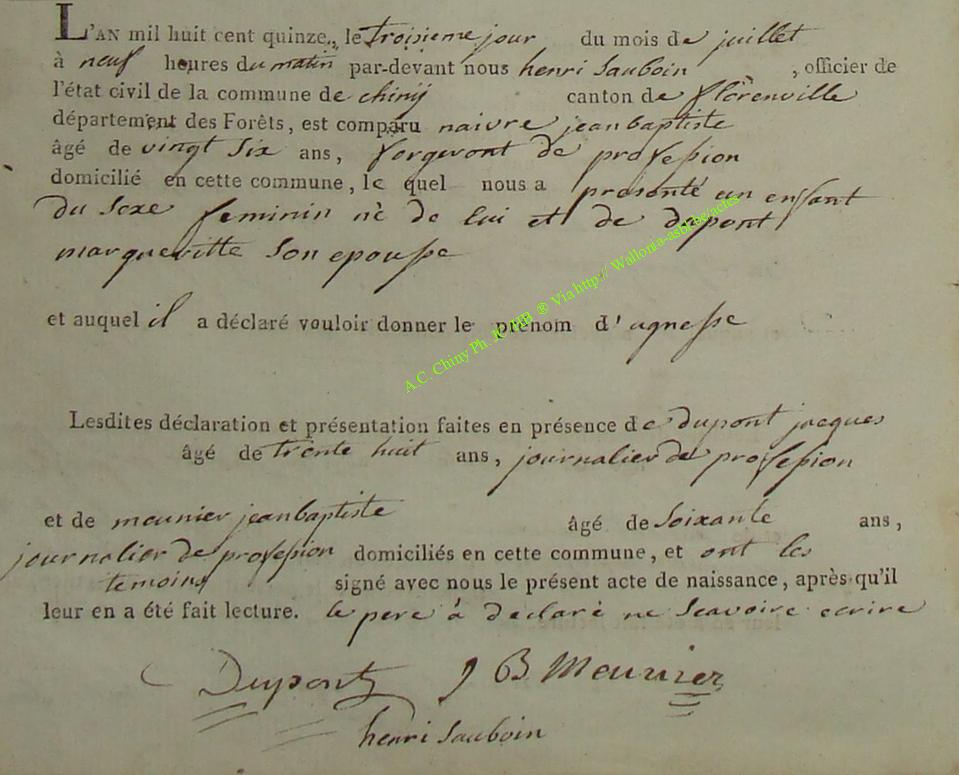 L'AN mil huit cent quinze, le troisieme jour du mois de juillet
à neuf heures du matin par-devant nous henri Sauboin , officier de
l'état civil de la commune de chiny canton de florenville
département des Forêts, est comparu naivre jean baptiste
âgé de vingt Six ans, forgeront de profession
domicilié en cette commune, le quel nous a presenté un enfant
du Sexe feminin nè de lui et de dupont
margueritte Son epousse
et auquel il a déclaré vouloir donner le prénom d'agnesse
Lesdites déclaration et présentation faites en présence de dupont jacques
âgé de trente huit ans, journalier de profession
et de meunier jean baptiste âgé de Soixante ans,
journalier de profession domiciliés en cette commune, et ont les
temoins signé avec nous le présent acte de naissance, après qu'il
leur en a été fait lecture. le pere à declarè ne Scavoire ecrire
Dupont J B Meunier
henri Sauboin
A.C. Chiny Ph. ® Via http:// Wallonia-asbl.be/actes